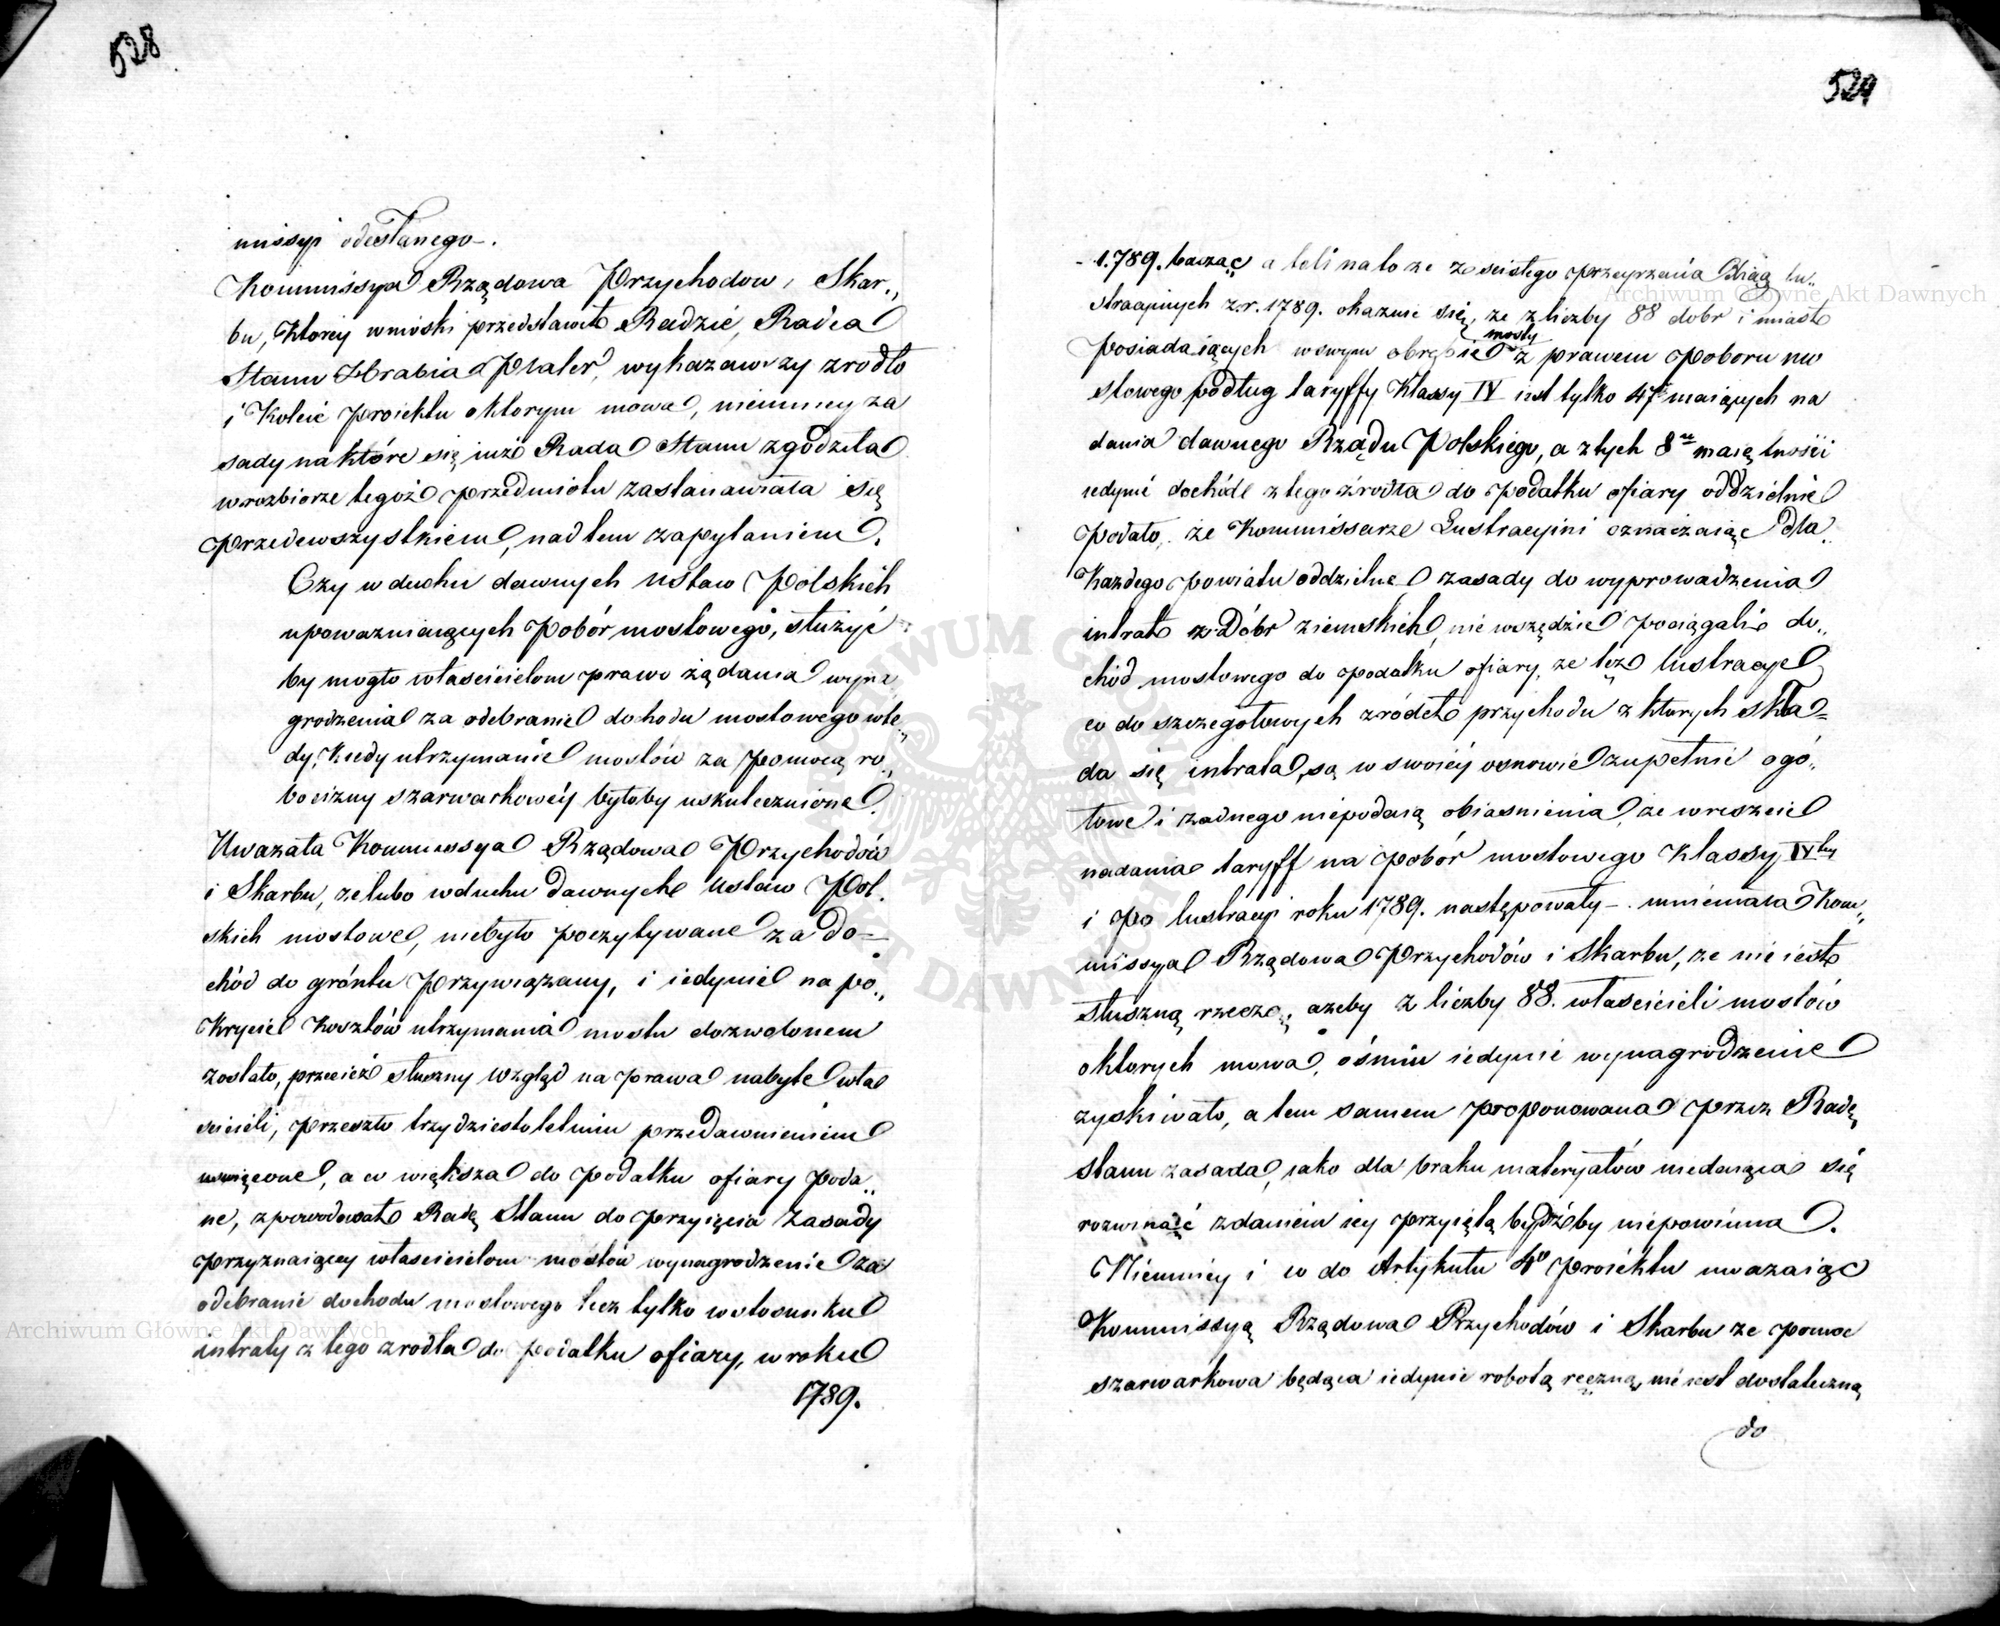 528
missyi odesłanego.
Kommissya Rządowa Przychodow i Skar„
bu, Ktorey wnioski przedstawił Radzie, Radca
Stanu Hrabia Plater, wykazawszy zrodło
i Koleie Proiektu o ktorym mowa, niemniey za
sady na które się iuż Rada Stanu zgodziła
w rozbiorze tegoż przedmiotu zastanawiała się
przedewszystkiem, nad tem zapytaniem.
Czy w duchu dawnych ustaw Polskich
upoważniaiących Pobór mostowego, służyć
by mogło właścicielom prawo żądania wyna
grodzenia za odebranie dochodu mostowego wte„
dy, Kiedy utrzymanie mostów za pomocą ro„
bocizny szarwarkowéy byłoby uskutecznione.
Uważała Kommissya Rządowa Przychodów
i Skarbu, że lubo w duchu dawnych Ustaw Pol.
skich mostowe, niebyło poczytywane za do=
chód do gróntu Przywiązany, i iedynie na po„
Krycie Kosztów utrzymania mostu dozwolonem
zostało, przecież słuszny wzgląd na prawa nabyte wła
ścicieli, przeszło trzydziestoletniem przedawnieniem
uswięcone, a co większa do podatku ofiary poda„
ne, spowodował Radę Stanu do przyięcia zasady
przyznaiącey właścicielom mostów wynagrodzenie za
odebranie dochodu mostowego lecz tylko w stosunku
intraty z tego zrodła do podatku ofiary, w roku
1789.
529
1.789. bacząc atoli na to że ze scisłego przeyrzenia Xiąg lu„
stracyinych z r. 1789. okazuie się, że z liczby 88 dobr i miast
posiadaiących w swym obrębie mosty z prawem poboru mo
stowego podług taryffy Klassy IV iest tylko 47 maiących na
dania dawnego Rządu Polskiego, a z tych 8 maiętności
iedynie dochód z tego źrodła do podatku ofiary oddzielnie
podało, że Kommissarze Lustracyini oznaczaiąc dla
Każdego powiatu oddzielne zasady do wyprowadzenia
intrat z Dóbr ziemskich, nie wszędzie pociągali do„
chód mostowego do podatku ofiary, że też lustracye
co do szczegołowych zródeł przychodu z ktorych skła=
da się intrata, są w swoiéy osnowie zupełnie ogó„
łowe i żadnego niepodaią obiasnienia, że wreszcie
nadania taryff na pobór mostowego Klassy IVty
i po lustracyi roku 1789. następowały –. mniemała Kom„
missya Rządowa Przychodów i Skarbu, że nie iest
słuszną rzeczą, ażeby z liczby 88. właścicieli mostów
o ktorych mowa, ośmiu iedynie wynagrodzenie
zyskiwało, a tem samem proponowana przez Radę
stanu zasada, iako dla braku materyałów niedaiąca się
rozwinąć zdaniem iey przyiętą bydźby niepowinna.
Niemniey i co do Artykułu 4º proiektu uważaiąc
Kommissyą Rządowa Przychodów i Skarbu że pomoc
szarwarkowa będąca iedynie robotą ręczną, nie iest dostateczną
do
Archiwum Główne Akt Dawnych
Archiwum Główne Akt Dawnych
ARCHIWUM GŁÓWNE AKT DAWNYCH